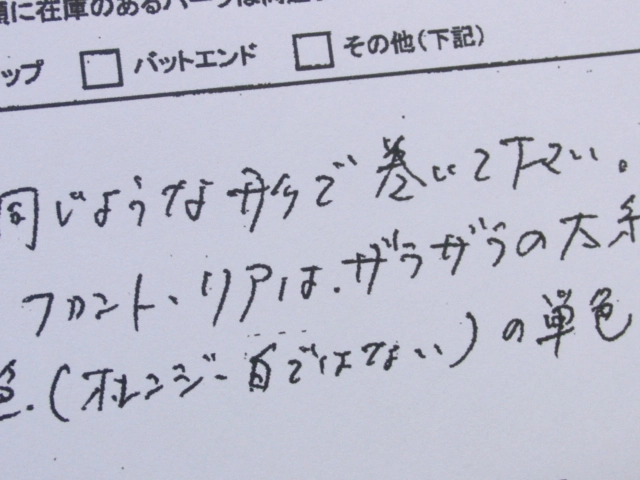 に在庫のあるパーツは
ップ □ バットエンド □ その他(下記)
同じような形で巻いて下さい。
フロント、リアは、ザラザラの太糸
色.(オレンジ-白ではない)の単色